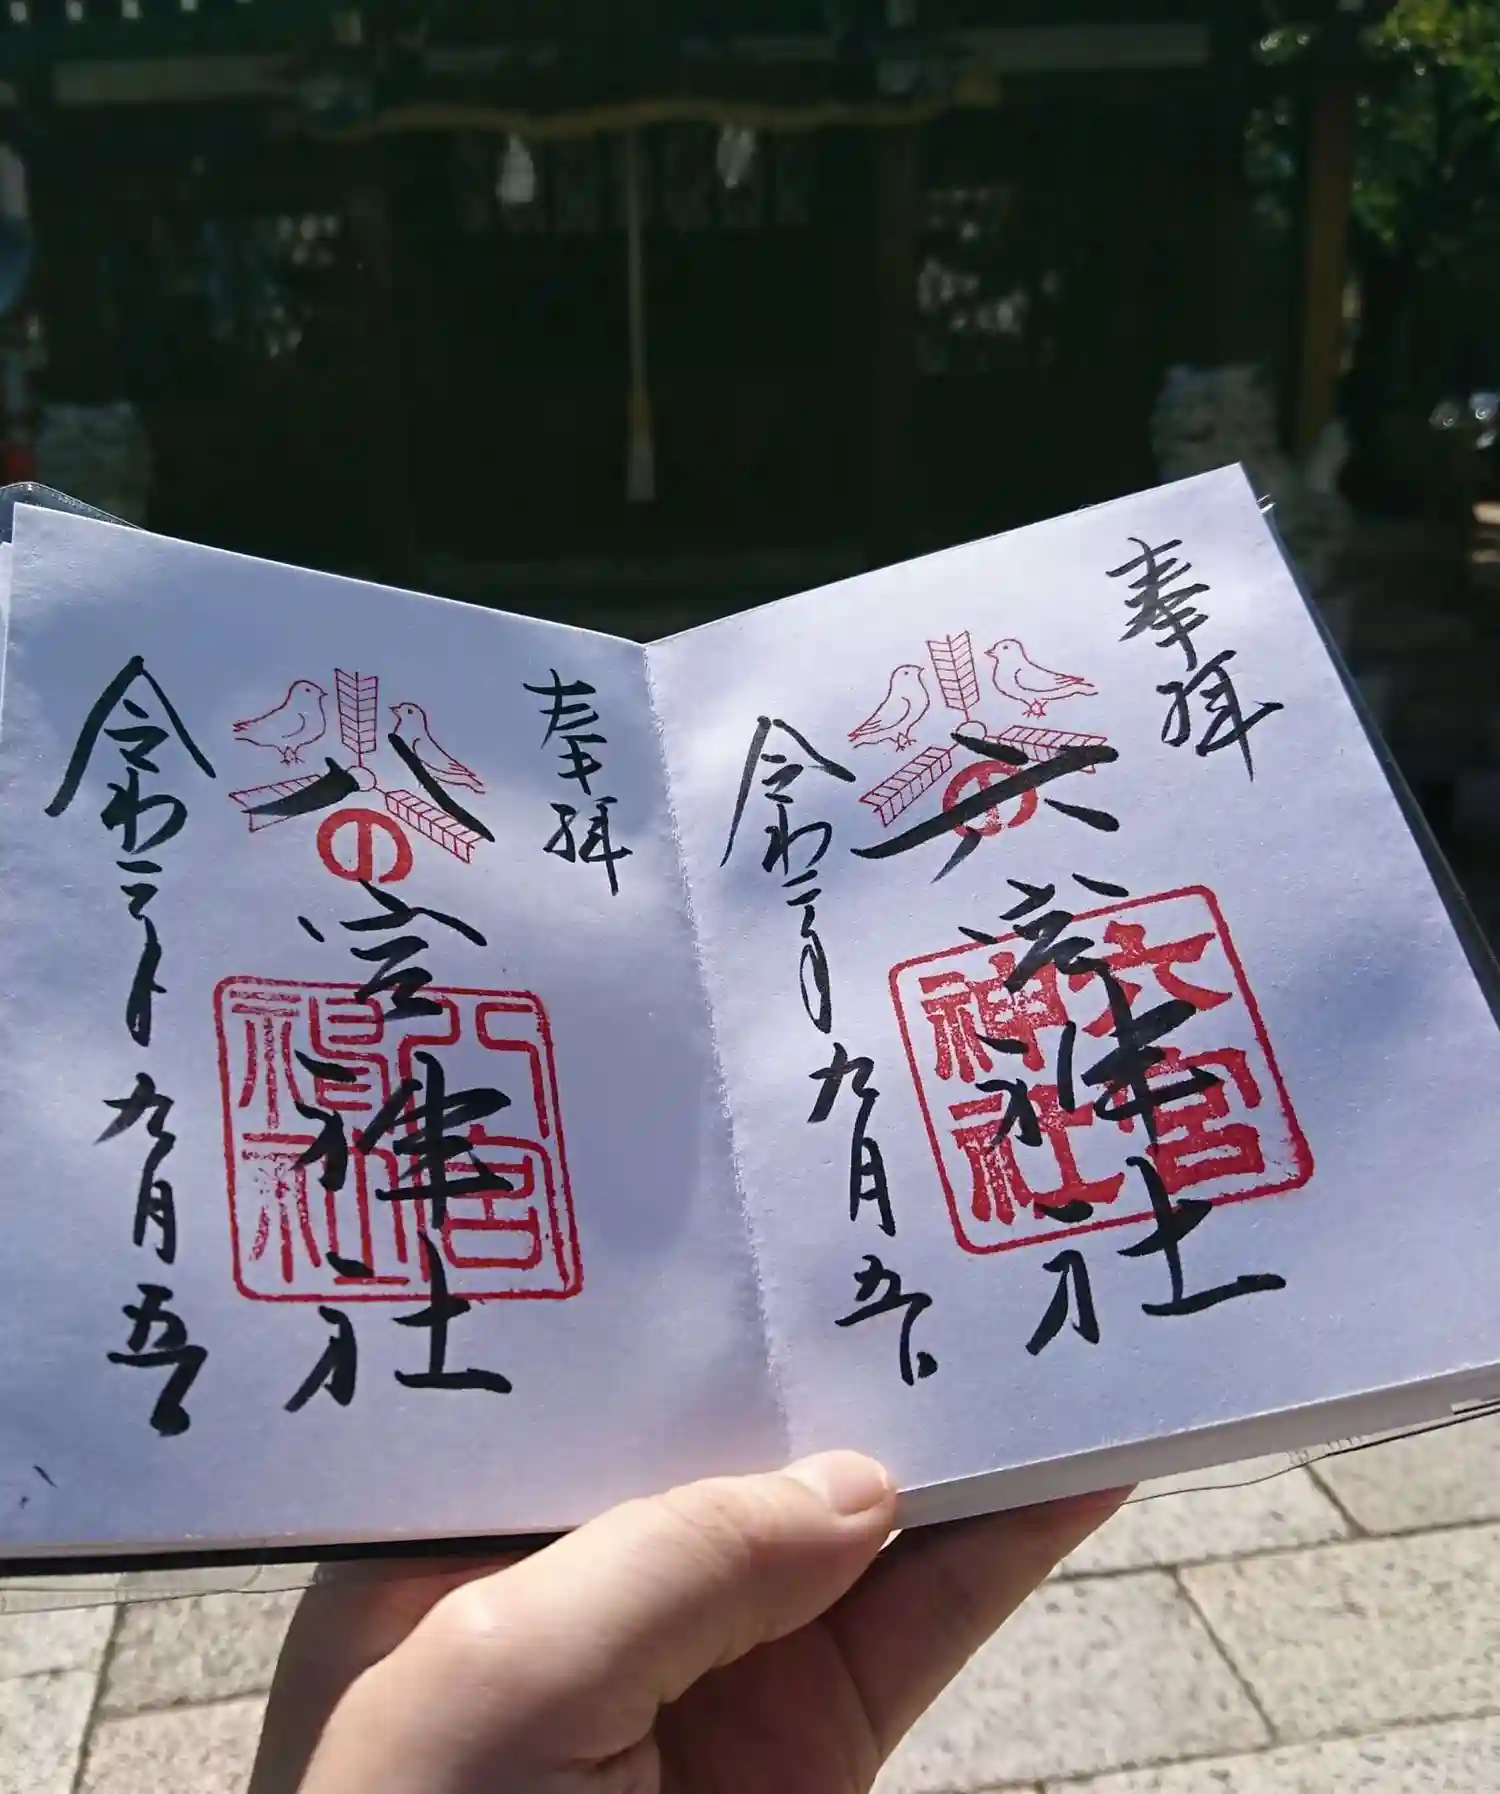 奉拝
の
六宮神社
六宮
神社
令和二年九月五日
奉拝
の
八宮神社
八宮
神社
令和二年九月五日